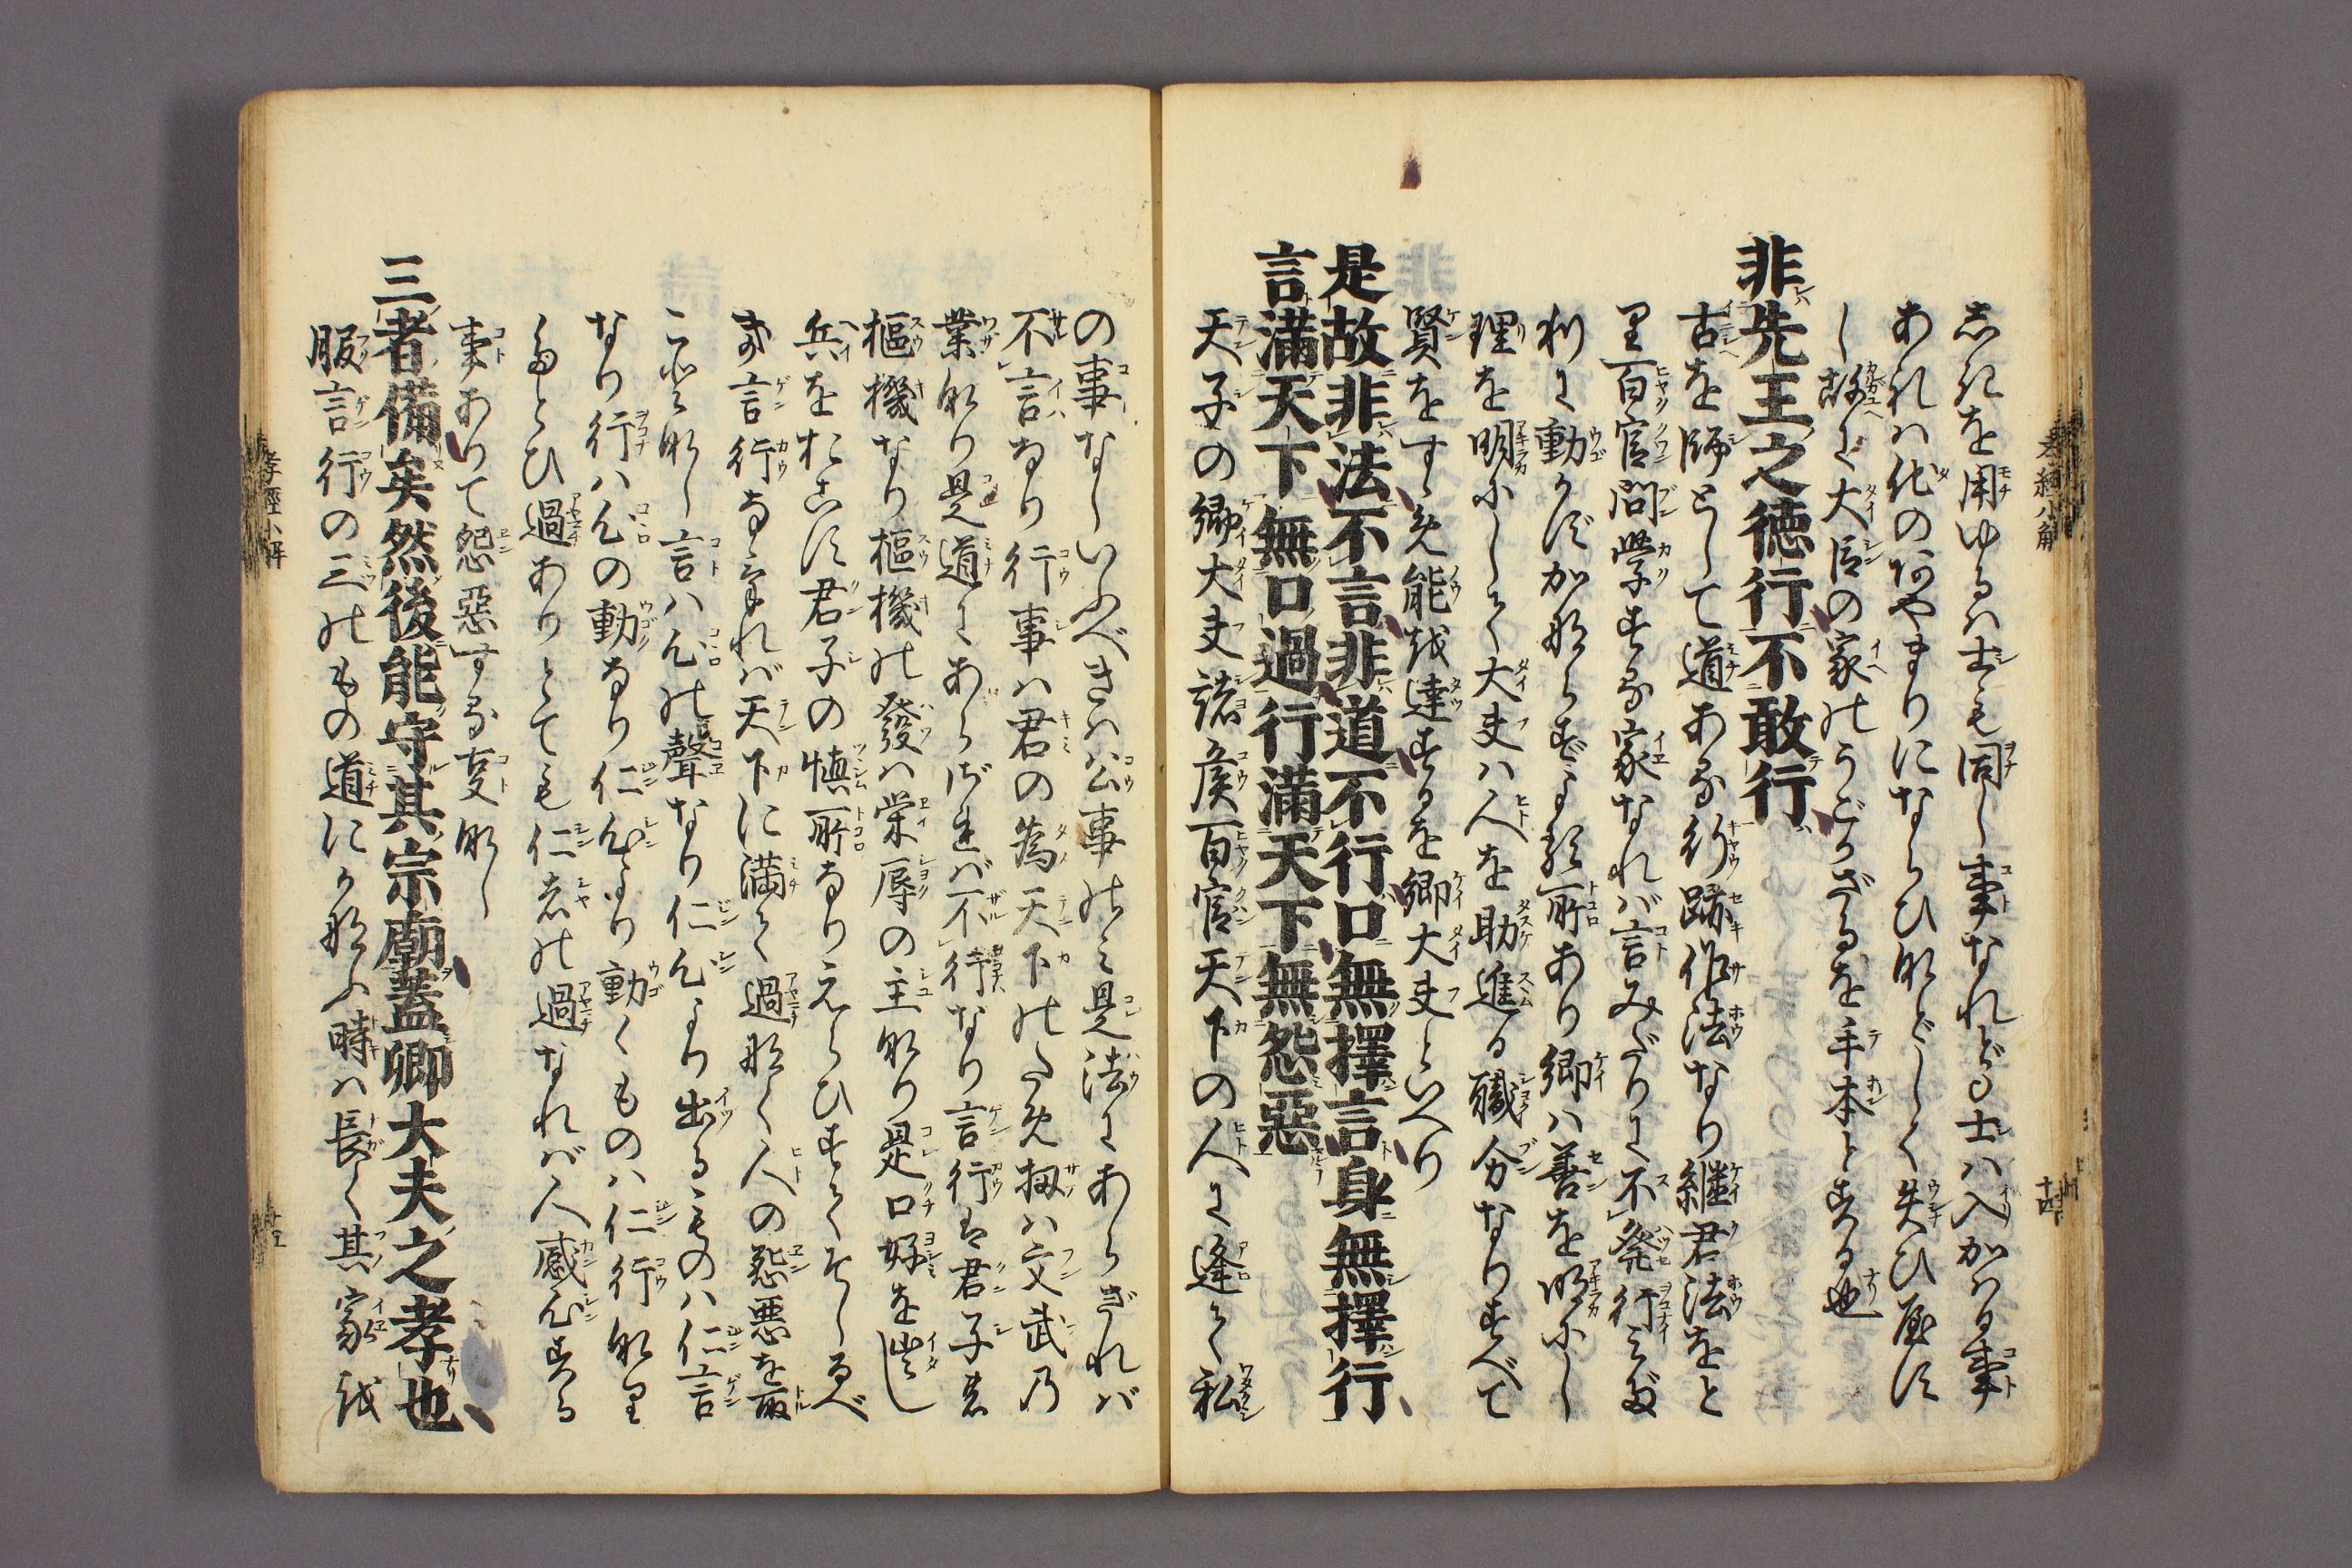 しきを用ゆるハ士も同し事なれども士ハ入かハる事
あれハ他のあやまりにならひ如どしく失ひ
し故に大臣の家のうごかざるを手本とする也
非先王之徳行不敢行
古を師として道ある行跡作法なり継君法をと
り百官問学する家なれば言みだりに不発行
利に動かず加
理を明にして大夫ハ人を助進る職分なりすべて
賢をすゝめ能を達するを卿大夫といへり
是故非法不言非道不行口無擇言身無擇行
言満天下無口過行満天下無怨惡
天子の卿大夫諸侯百官天下の人に逢て私
の事なしいふべきハ公事のミ是法にあらざれバ
不言なり行事ハ君の為天下のため扨ハ文武乃
業なり是道にあらざれバ不行なり言行は君子の
樞機なり樞機の發ハ栄辱の主なり是口好を出し
兵をおこす君子の慎所なりえらひすてそしるべ
き言行なけれバ天下に満て過なく人の怨悪を取
ことなし言ハ心の聲なり仁心より出るものハ仁言
なり行ハ心の動なり仁心より動くものハ仁行なり
たとひ過ありとても仁者の過なれば人感心する
事ありて怨惡する事なし
三者備矣然後能守其宗廟蓋卿大夫之孝也
服言行の三のもの道にかなふ時ハ長く其家を
孝經小解
十四
孝經小解
十五